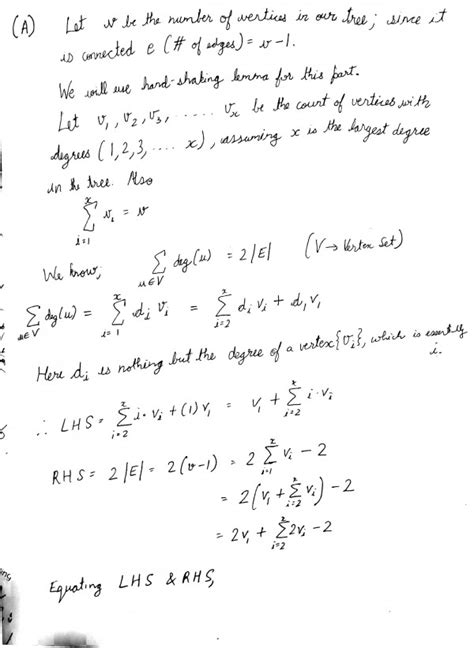 (A) Let v be the number of vertices in our tree; since it
is connected e (# of edges) = v-1.
We will use hand-shaking lemma for this part.
Let v₁, v₂, v₃, ..... vₓ be the count of vertices with
degrees (1,2,3, .... x), assuming x is the largest degree
in the tree. Also
∑_{i=1}^{x} vᵢ = v
We know, ∑_{u∈V} deg(u) = 2|E| (V → Vertex Set)
∑_{u∈V} deg(u) = ∑_{i=1}^{x} dᵢ vᵢ = ∑_{i=2}^{x} dᵢ vᵢ + d₁v₁
Here dᵢ is nothing but the degree of a vertex {vᵢ}, which is essentially
i.
∴ LHS = ∑_{i=2}^{x} i·vᵢ + (1)v₁ = v₁ + ∑_{i=2}^{x} i·vᵢ
RHS = 2|E| = 2(v-1) = 2∑_{i=1}^{x} vᵢ - 2
= 2(v₁ + ∑_{i=2}^{x} vᵢ) - 2
= 2v₁ + ∑_{i=2}^{x} 2vᵢ - 2
Equating LHS & RHS,